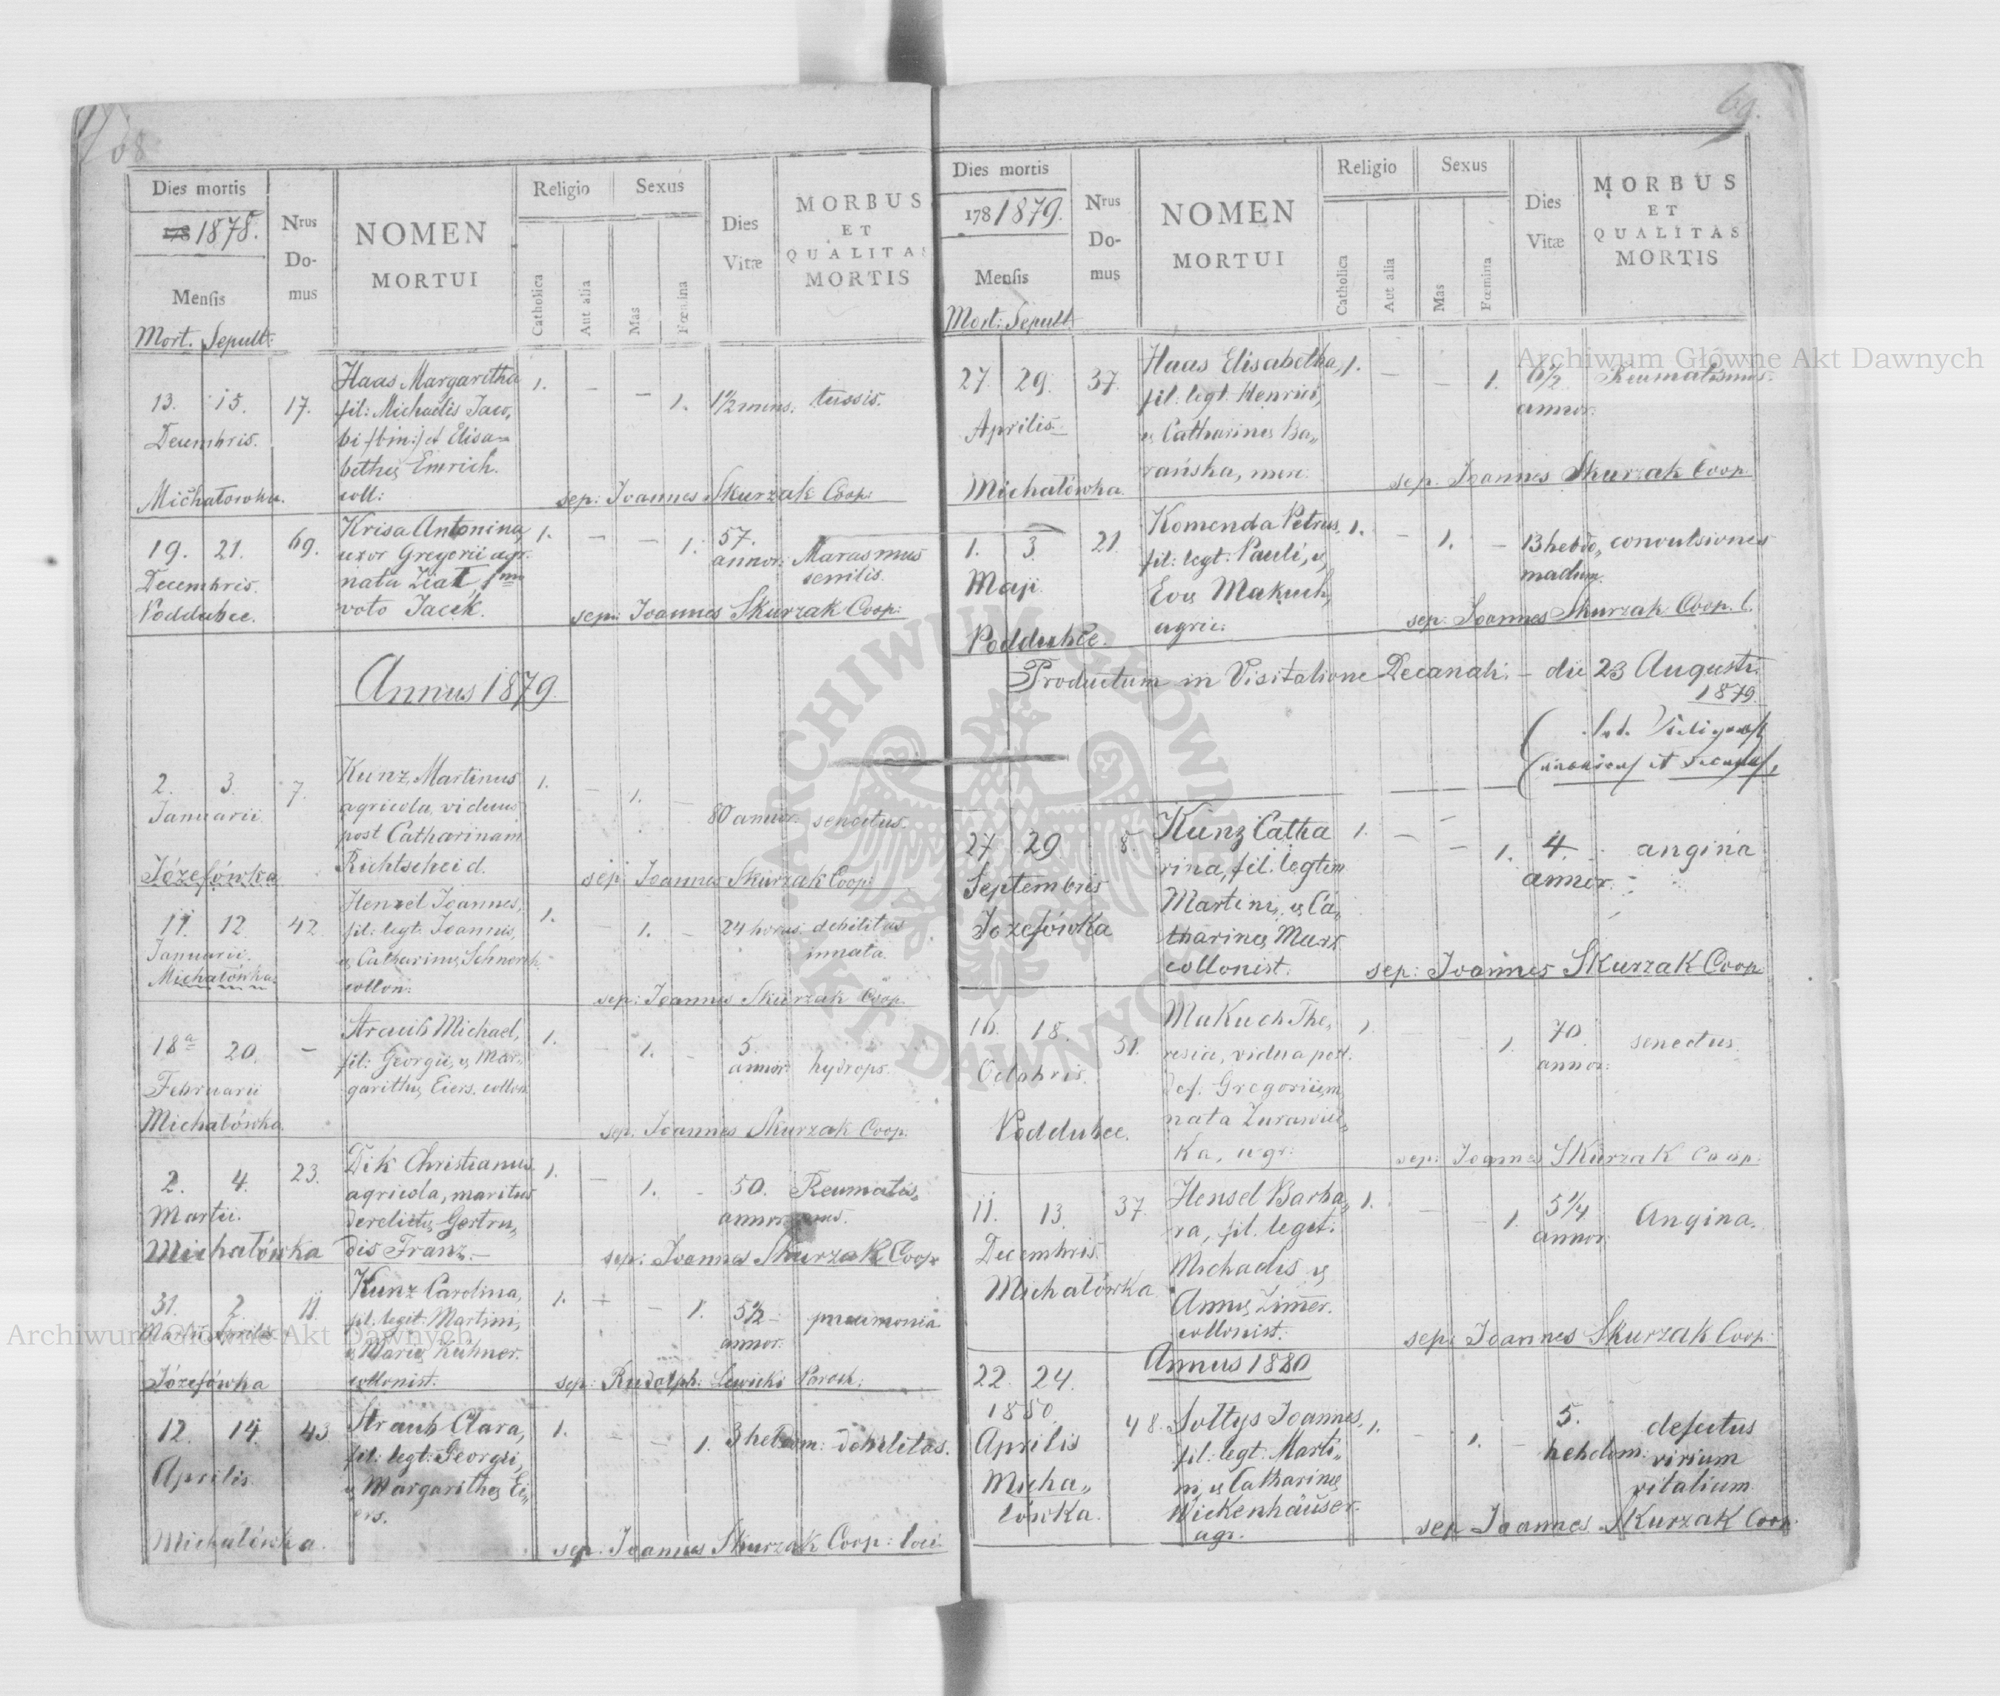 68
Dies mortis
178 1878.
Mensis
Mort. Sepult:
Nrus Do-mus
NOMEN
MORTUI
Religio
Catholica
Aut alia
Sexus
Mas
Fœmina
Dies Vitæ
MORBUS
ET
QUALITAS
MORTIS
13. 15. 17. Haas Margaritha 1. – – 1. 1½ mens. tussis.
Decembris. fil: Michaelis Jaco,
bi (bin:) et Elisa-
bethæ Emrich.
Michałowka. coll: sep: Joannes Skurzak Coop:
19. 21. 69. Krisa Antonina 1. – – 1. 57. annor: Marasmus senilis.
Decembris. uxor Gregorii agr.
nata Ziat,
Poddubce. voto Jacek. sep: Joannes Skurzak Coop:
Annus 1879
2. 3. 7. Kunz Martinus 1. – 1. – 80 annor. senectus.
Januarii agricola, viduus
post Catharinam
Józefówka Richtscheid. sep: Joannes Skurzak Coop:
11. 12. 42. Henzel Joannes, 1. – 1. – 24 horas debilitas innata.
Januarii. fil: legt. Joannis,
Michałówka. & Catharinæ Schnerch
collon: sep: Joannes Skurzak Coop.
18a 20. – Straub Michael, 1. – 1. – 5. annor: hydrops.
Februarii fil: Georgii, & Mar-
garithæ Eiers. collon
Michałówka. sep. Joannes Skurzak Coop:
2. 4. 23. Dik Christianus 1. – 1. – 50. annor. Reumatis,
Martii. agricola, maritus mus.
derelictæ Gertru,,
Michałówka dis Franz.– sep: Joannes Skurzak Coop.
31. 2. 11 Kunz Carolina, 1. – – 1. 5½ annor. pneumonia
Martii Aprilis fil. legit. Martini,
& Mariæ Zuhner.
Józefówka collonist. sep: Rudolph: Lewicki Paroch:
12. 14. 43 Straub Clara, 1. – – 1. 3 hebdom: debilitas.
Aprilis. fil: legt: Georgii,
& Margarithæ Ei,,
ers.
Michałówka. sep: Joannes Skurzak Coop: loci.
69.
Dies mortis
178 1879.
Mensis
Mort: Sepult
Nrus Do-mus
NOMEN
MORTUI
Religio
Catholica
Aut alia
Sexus
Mas
Fœmina
Dies Vitæ
MORBUS
ET
QUALITAS
MORTIS
27. 29. 37. Haas Elisabetha, 1. – – 1. 6½ annor. Reumatismus.
Aprilis fil: legt. Henrici,
& Catharinæ Ba,,
Michałówka. rańska, sep. Joannes Skurzak Coop
1. 3. 21. Komenda Petrus, 1. – 1. – 13 hebdo,, convulsiones
Maji fil: legt: Pauli, & madum.
Evæ Makuch,
Poddubce. agric: sep: Joannes Skurzak Coop. l.
Productum in Visitatione Decanali. – die 23 Augusti.
1879.
27 29 8. Kunz Catha 1. – – 1. 4. annor. angina
Septembris rina, fil. legtim
Jozefówka Martini, & Ca,,
tharinæ Marx
collonist. sep: Joannes Skurzak Coop
16. 18. 51. Makuch The, 1. – – 1. 70. annor: senectus.
Octobris. resia, vidua post.
def. Gregorium,
Poddubce. nata Zurawie,,
ka, agr: sep: Joannes Skurzak Coop:
11. 13. 37. Hensel Barba,, 1. – – 1. 5¼ annor. Angina.
Decembris. ra, fil. legt.
Michałówka Michaelis &
Annæ Zimer.
collonist. sep: Joannes Skurzak Coop:
Annus 1880
22. 24. 48. Sottys Joannes, 1. – 1. – 5. hebdom: defectus
1880 fil: legt: Marti,, virium
Aprilis ni, & Catharinæ vitalium
Micha,, Wickenhäuser.
łówka. agr. sep Joannes Skurzak Coop.
Archiwum Główne Akt Dawnych
Archiwum Główne Akt Dawnych
ARCHIWUM GŁÓWNE AKT DAWNYCH